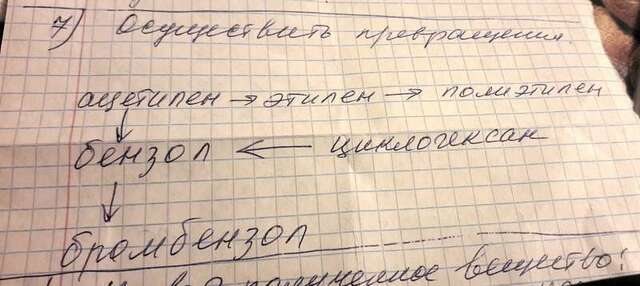 7) Осуществить превращения
ацетилен → этилен → полиэтилен
↓
бензол ← циклогексан
↓
бромбензол
полученное вещество: